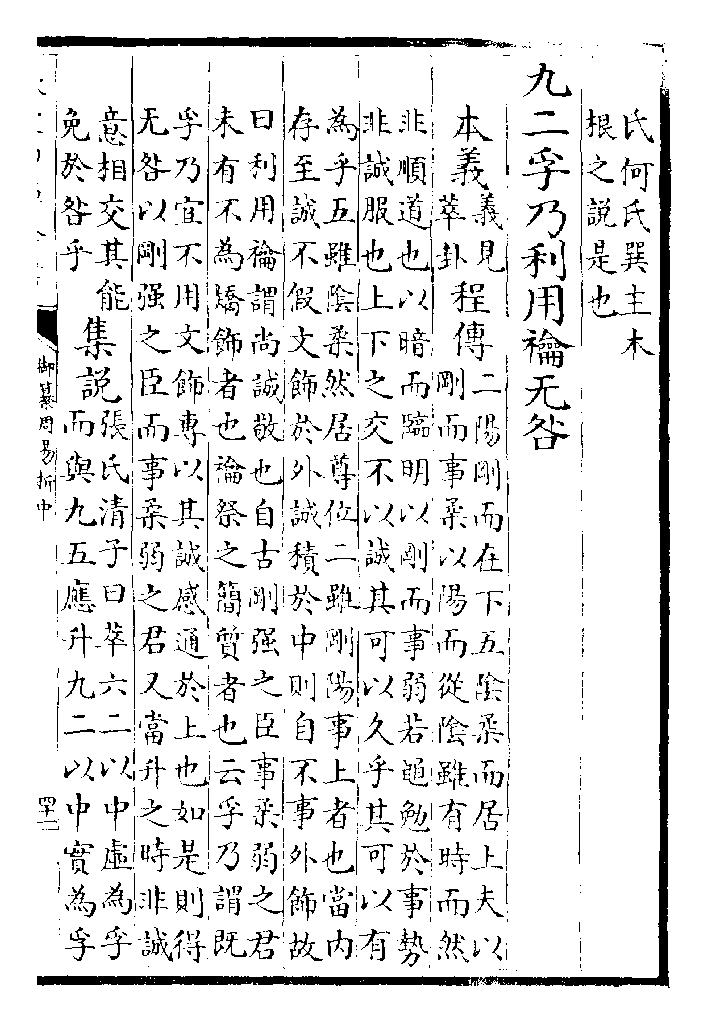 氏何氏巽主木
根之說是也
九二孚乃利用禴无咎
本義義見
萃卦
程傳二陽剛而在下五陰柔而居上夫以
剛而事柔以陽而從陰雖有時而然
非順道也以暗而臨明以剛而事弱若黽勉於事勢
非誠服也上下之交不以誠其可以久乎其可以有
為乎五雖陰柔然居尊位二雖剛陽事上者也當內
存至誠不假文飾於外誠積於中則自不事外飾故
曰利用禴謂尚誠敬也自古剛强之臣事柔弱之君
未有不為矯飾者也禴祭之簡質者也云孚乃謂既
孚乃宜不用文飾專以其誠感通於上也如是則得
无咎以剛强之臣而事柔弱之君又當升之時非誠
意相交其能
免於咎乎
集說張氏清子曰萃六二以中虛為孚
而與九五應升九二以中實為孚
御纂周易折中